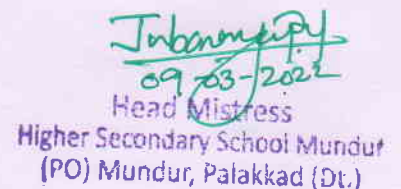 09-03-2022
Head Mistress
Higher Secondary School Mundur
(PO) Mundur, Palakkad (Dt.)